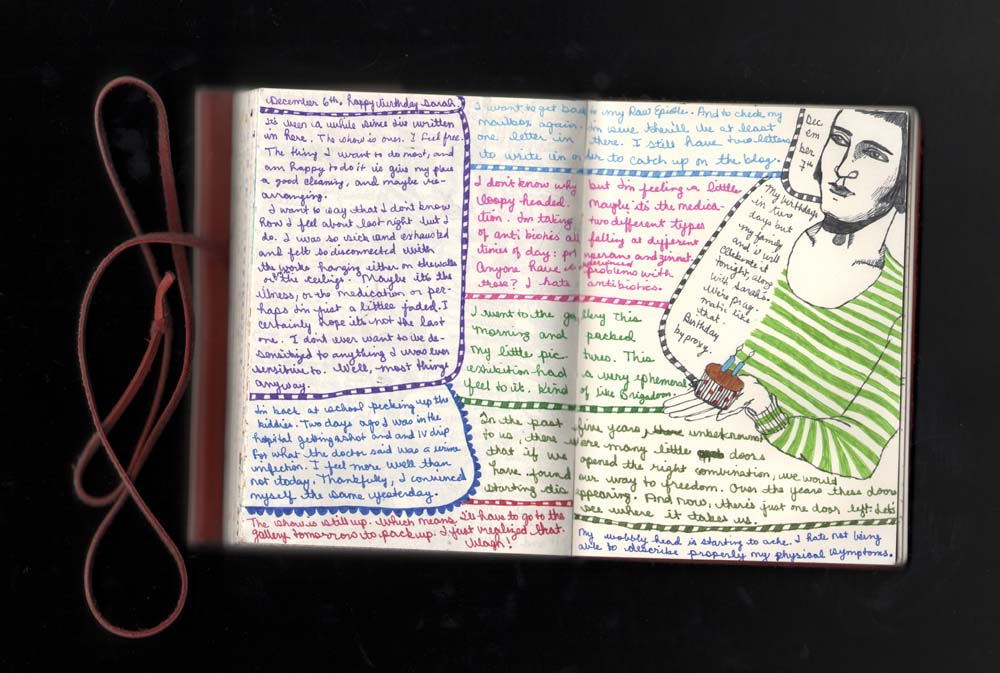 December 6th. Happy Birthday Sarah.
It's been a while since I've written
in here. The show is over. I feel free.
The thing I want to do most, and
am happy to do it is give my place
a good cleaning, and maybe re-
arranging.
I want to say that I don't know
how I feel about last night but I
do. I was so sick and exhausted
and felt so disconnected with
the works hanging either on the walls
or the ceilings. Maybe it's the
illness, or the medication or per-
haps I'm just a little jaded. I
certainly hope it's not the last
one. I don't ever want to be de-
sensitized to anything I was ever
sensitive to. Well, most things
anyway.
I'm back at school pecking up the
kiddies. Two days ago I was in the
hospital getting a shot and and IV drip
For what the doctor said was a urine
infection. I feel more well than
not today. Thankfully, I convinced
myself the same yesterday.
The show is still up. Which means I'll have to go to the
gallery tomorrow to pack up. I just realized that.
Ulagh!
I want to get back to my Raw Epistle. And to check my
mailbox again. I'm sure there'll be at least
one letter in there. I still have two letters
to write in order to catch up on the blog.
I don't know why but I'm feeling a little
loopy headed. Maybe it's the medica-
tion. I'm taking two different types
of antibiotics all falling at different
times of day:
Anyone have experienced problems with
these? I hate antibiotics.
I went to the gallery this
morning and packed
my little pictures. This
exhibition had a very ephemeral
feel to it. Kind of like Brigadoon.
In the past five years, unbeknownst
to us, there were many little doors
that if we opened the right combination, we would
have found our way to freedom. Over the years these doors
starting disappearing. And now, there's just one door left. Let's
see where it takes us.
Dec
em
ber
7th
My birthdays
in two
days but
my family
and I will
celebrate it
tonight, along
with Sarah's.
We're prag
matic like
that.
Birthday
by proxy.
My wobbly head is starting to ache. I hate not being
able to describe properly my physical symptoms.